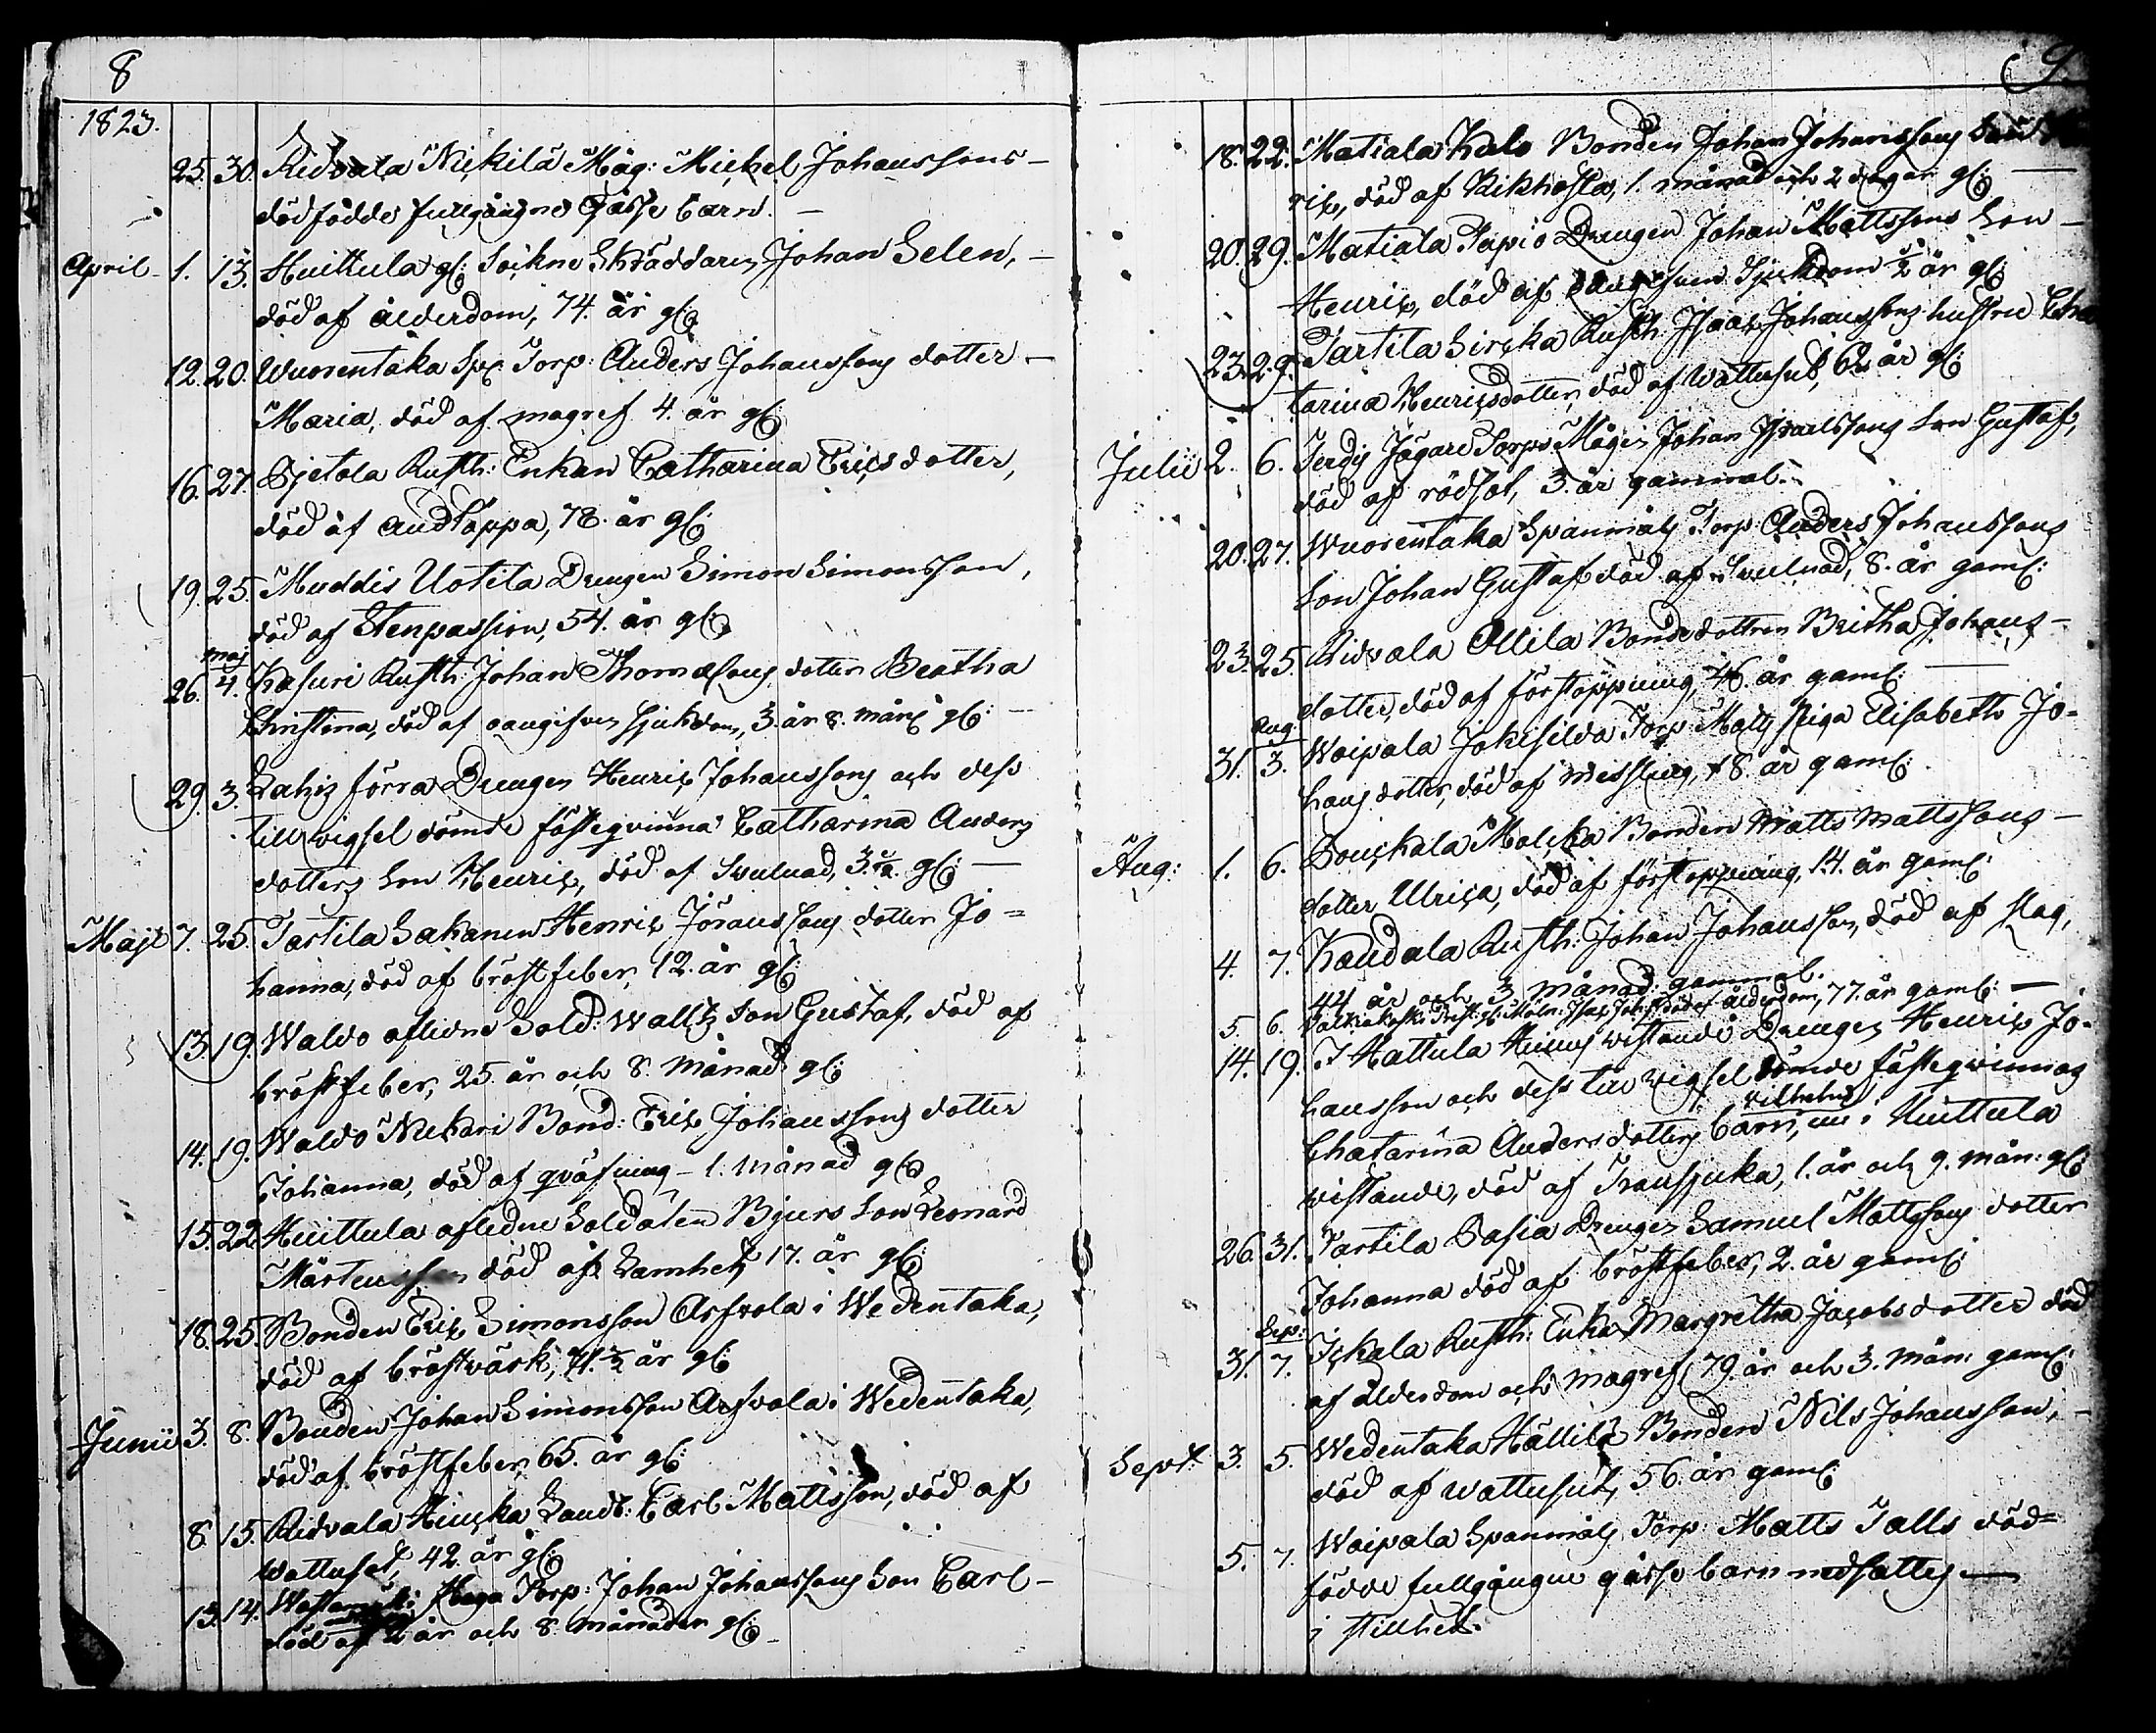 8
1823.
25. 30. Ridvala Nickilä Måg: Michel Johanssons
dödfödde fullgångne Gosse barn. —
April 1. 13. Huittula gl: Sockne Skräddaren Johan Selen, —
död af ålderdom, 74. år gl:
12. 20. Wuorentaka Sp: Torp: Anders Johanssons dotter —
Maria, död af magref 4. år gl:
16. 27. Sjetola Rusth: Enkan Catharina Ericsdotter,
död af andtäppa, 78. år gl:
19. 25. Muddis Uotila Drengen Simon Simonsson,
död af Stenpassion, 54. år gl:
maj
26. 4. Kasuri Rusth: Johan Thomæsons dotter Beatha
Christina, död af oangifven sjukdom, 3. år 8. mån: gl: —
29. 3. Lahis förra Drengen Henric Johanssons och dess
till wigsel dömde fästeqvinna Catharina Anders
dotters Son Henric, död af Svulnad, gl: —
Maji 7. 25. Tarttila Sakanen Henric Göranssons dotter Jo=
hanna, död af bröstfeber, 12. år gl:
13. 19. Waldo aflidne Sold: Wallz Son Gustaf, död af
bröstfeber, 25. år och 8. Månad gl:
14. 19. Waldo Nuckari Bond: Eric Johanssons dotter
Johanna, död af qväfning — 1. månad gl:
15. 22. Huittula afledne Soldaten Bjurs Son Leonard
Mårtensson död af Lamhet, 17. år gl:
18. 25. Bonden Eric Simonsson Arfvola i Wedentaka,
död af bröstvärk, 71. ½ år gl:
Junii 3. 8. Bonden Johan Simonsson Arfvola i Wedentaka,
död af bröstfeber, 65. år gl:
8. 15. Ridvala Hincka Landb: Carl Mattsson, död af
Wattusot, 42. år gl:
13. 14. Haga Torp: Johan Johanssons Son Carl —
död af 2 år och 8. månader gl: —
9.
18. 22. Matiala Kulo Bonden Johan Johanssons
ric, död af Kikhosta, 1. månad och 2 dagar gl: —
20. 29. Matiala Papio Drengen Johan Mattssons Son —
Henric, död af Sjukdom ½ år gl:
23. 29. Tarttila Sircka Rusth: Isaac Johanssons hustru Cha
tarina Henricsdotter, död af Wattusot, 62. år gl:
Julii 2. 6. Jerdis Jägare Torps Mågen Johan Israelssons Son Gustaf,
död af rödsot, 3. år gammal.
20. 27. Wuorentaka Spanmåls Torp: Anders Johanssons
Son Johan Gustaf död af Svulnad, 8. år gaml:
23. 25. Ridvala Ollila Bondedottren Britha Johans —
dotter, död af förstoppning, 46. år gaml: —
Aug:
31. 3. Waipala Jokisilda Torp: Matts Piga Elisabeth Jo=
hans dotter, död af Messling, 18. år gaml:
Aug: 1. 6. Bouckala Malcka Bonden Matts Mattssons —
dotter Ulrica, död af förstoppning, 14. år gaml:
4. 7. Kaudala Rusth: Johan Johansson, död af slag,
44 år och 3 månad: gammal.
5. 6. Valkiakoski gl: Isac död af ålderdom, 77. år gaml: —
14. 19. I Hattula vistande Drengen Henric Jo=
hansson och dess till wigsel dömde fästeqwinnas
Vilhelm
Chatarina Andersdotters barn, nu i Huittula
vistande, död af Transjuka, 1. år och 9. mån: gl:
26. 31. Tarttila Pasia Drengen Samuel Mattssons dotter
Johanna död af bröstfeber, 2. år gaml:
Sep:
31. 7. Ickala Rusth: Enka Margretha Jacobsdotter död
af ålderdom och magref, 79. år och 3. mån: gaml:
Sept: 3. 5. Wedentaka Hällilä Bonden Nils Johansson, —
död af wattusot, 56 år gaml:
5. 7. Waipala Spanmåls Torp: Matts Talls död=
födde fullgångne gosse barn nedsattes —
i stillhet.